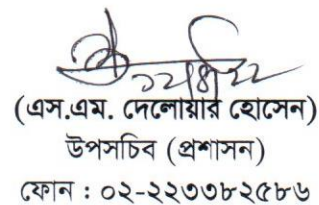 ১২/৪/২২
(এস.এম. দেলোয়ার হোসেন)
উপসচিব (প্রশাসন)
ফোন : ০২-২২৩৩৮২৫৮৬